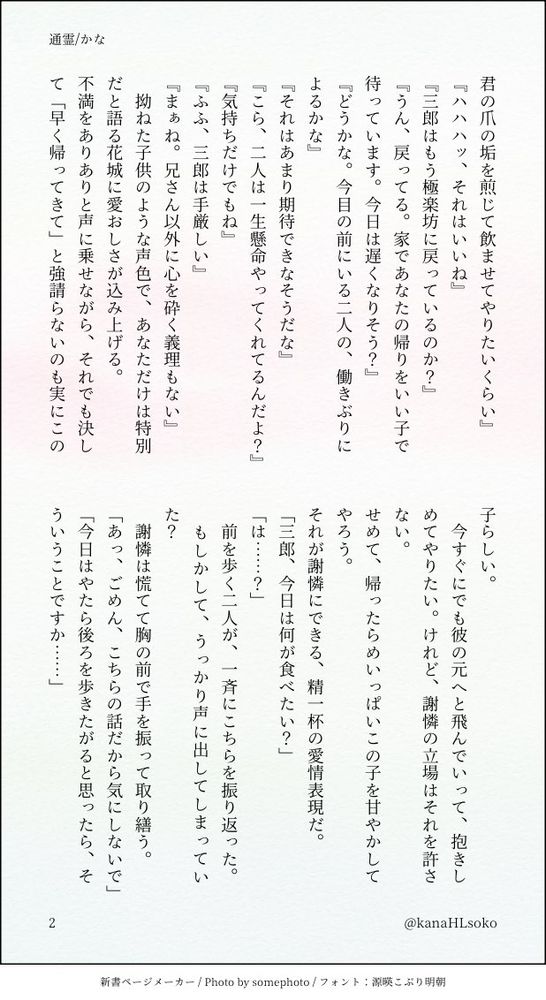 通霊/かな
君の爪の垢を煎じて飲ませてやりたいくらい』
『ハハハッ、それはいいね』
『三郎はもう極楽坊に戻っているのか？』
『うん、戻ってる。家であなたの帰りをいい子で
待っています。今日は遅くなりそう？』
『どうかな。今目の前にいる二人の、働きぶりに
よるかな』
『それはあまり期待できなそうだな』
『こら、二人は一生懸命やってくれてるんだよ？』
『気持ちだけでもね』
『ふふ、三郎は手厳しい』
『まぁね。兄さん以外に心を砕く義理もない』
拗ねた子供のような声色で、あなただけは特別
だと語る花城に愛おしさが込み上げる。
不満をありありと声に乗せながら、それでも決し
て「早く帰ってきて」と強請らないのも実にこの
子らしい。
今すぐにでも彼の元へと飛んでいって、抱きし
めてやりたい。けれど、謝憐の立場はそれを許さ
ない。
せめて、帰ったらめいっぱいこの子を甘やかして
やろう。
それが謝憐にできる、精一杯の愛情表現だ。
「三郎、今日は何が食べたい？」
「は……？」
前を歩く二人が、一斉にこちらを振り返った。
もしかして、うっかり声に出してしまってい
た？
謝憐は慌てて胸の前で手を振って取り繕う。
「あっ、ごめん、こちらの話だから気にしないで」
「今日はやたら後ろを歩きたがると思ったら、そ
ういうことですか……」
2
@kanaHLsoko
新書ページメーカー / Photo by somephoto / フォント：源暎こぶり明朝